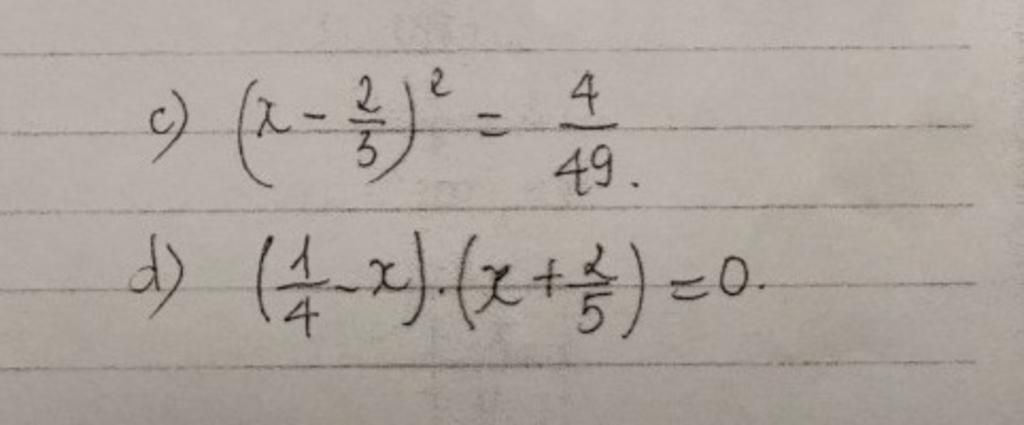 c) (x - 2/3)² = 4/49.
d) (1/4 - x).(x + 2/5) = 0.